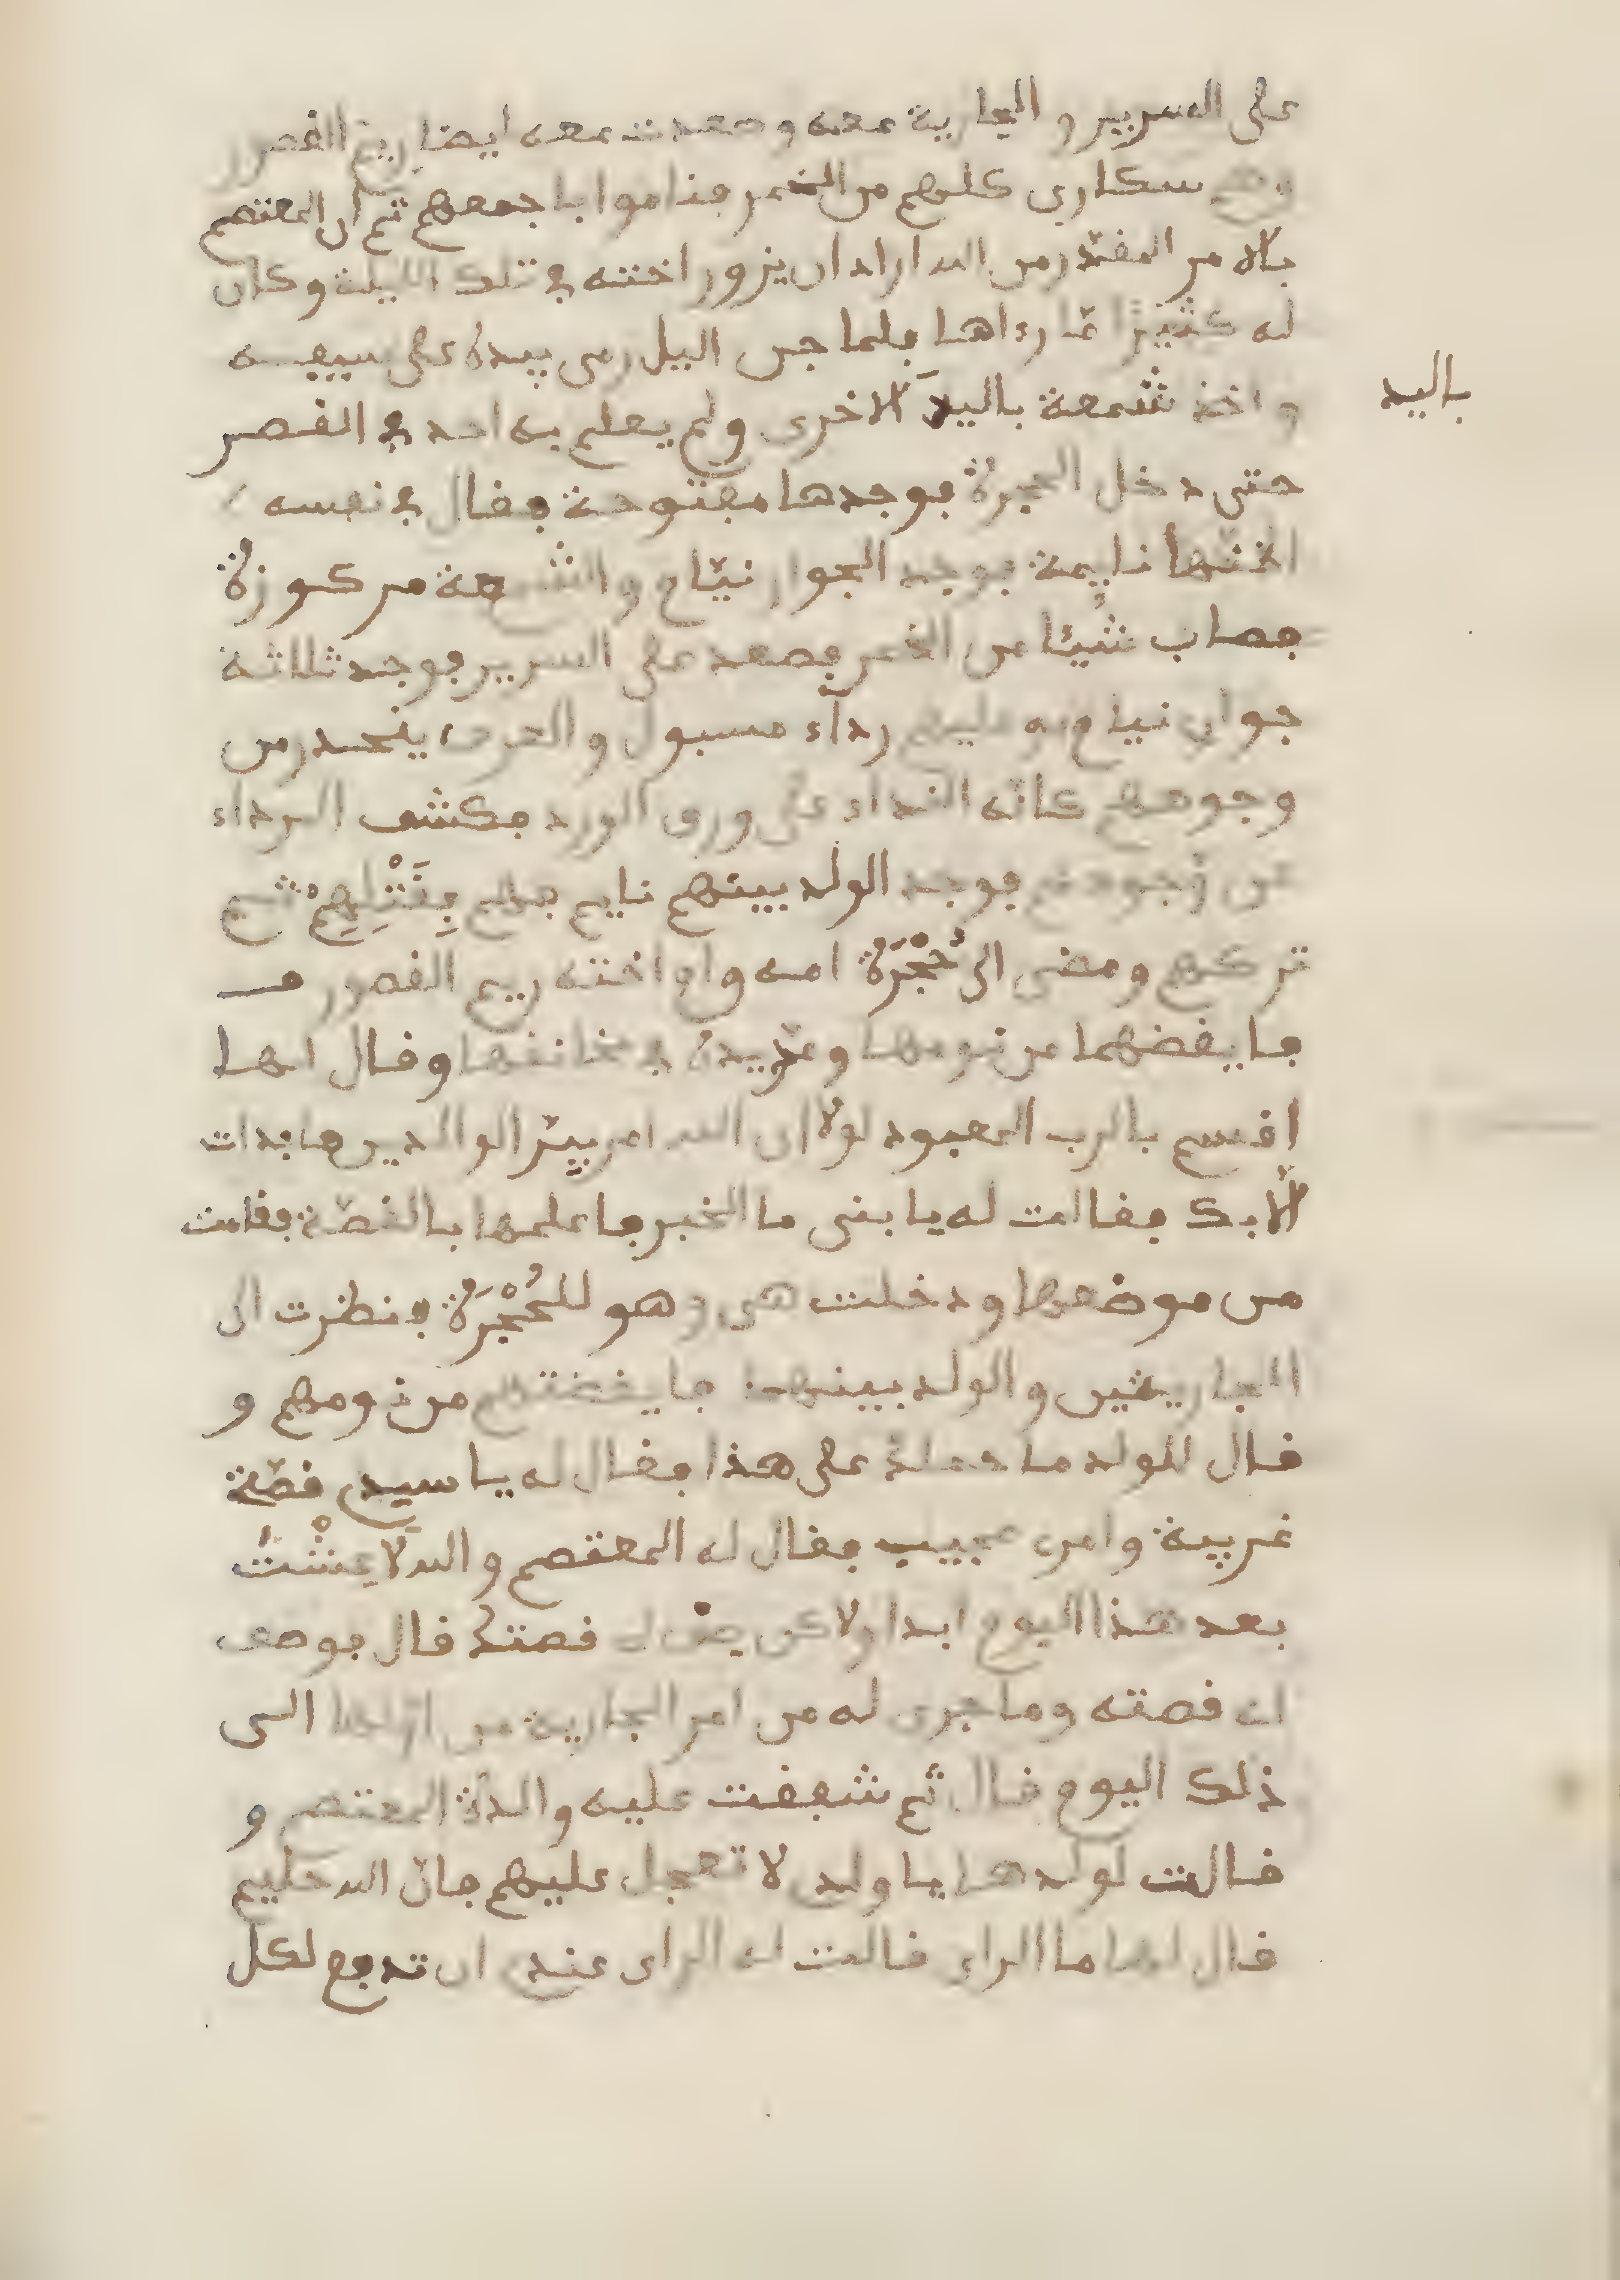 على السرير والجارية معه وصعدت معه ايضا ريم القصور
وهم سكارى كلهم من الخمر فناموا باجمعهم ثم ان المعتصم
بالامر المقدّر من الله اراد ان يزور اختته في تلك الليلة وكان
له كثيرًا مّا رءاها فلما جن اليل رمى بيده على سيفه
واخذ شمعة باليد الاخرى ولم يعلم به احد في القصر
باليد
حتى دخل الحجرة فوجدها مفتوحة فقال في نفسه
اختها نايمة فوجد الجوار نيّام والشمعة مركوزة
فصاب شيئا من الخمر فصعد على السرير فوجد ثلاثة
جوار نيام وعليهم رداء مسبول والعرق ينحدر من
وجوههم كانّه النداء على ورق الورد فكشف الرداء
عن وجوههم فوجد الولد بينهم نايم فهم بِقَتْلِهِمْ ثم
تركهم ومضى الى حُجْرَة امه وام اختته ريم القصور
فايقضهما من نومها ويده في مخانقها وقال لها
اقسم بالرب المعبود لولا ان الله امر ببرّ الوالدين ما بدات
الّا بك فقالت له يا بنى ما الخبر فاعلمها بالقصّة فقامت
من موضعها ودخلت هى وهو للحُجْرَة فنظرت الى
الجاريتين والولد بينهما فايقضتهم من نومهم و
قال للولد ما حملك على هذا فقال له يا سيدي قصّتى
غريبة وامرى عجيب فقال له المعتصم والله لَا عِشْتَ
بعد هذا اليوم ابدا ولاكن صف لى قصتك قال فوصف
له قصته وما جرى له من امر الجارية من اولها الى
ذلك اليوم قال ثم شفقت عليه والدة المعتصم و
قالت لولدها يا ولدى لا تعجل عليهم فانّ الله حليم
قال لها ما الراى قالت له الراى عندى ان تدفع لكل